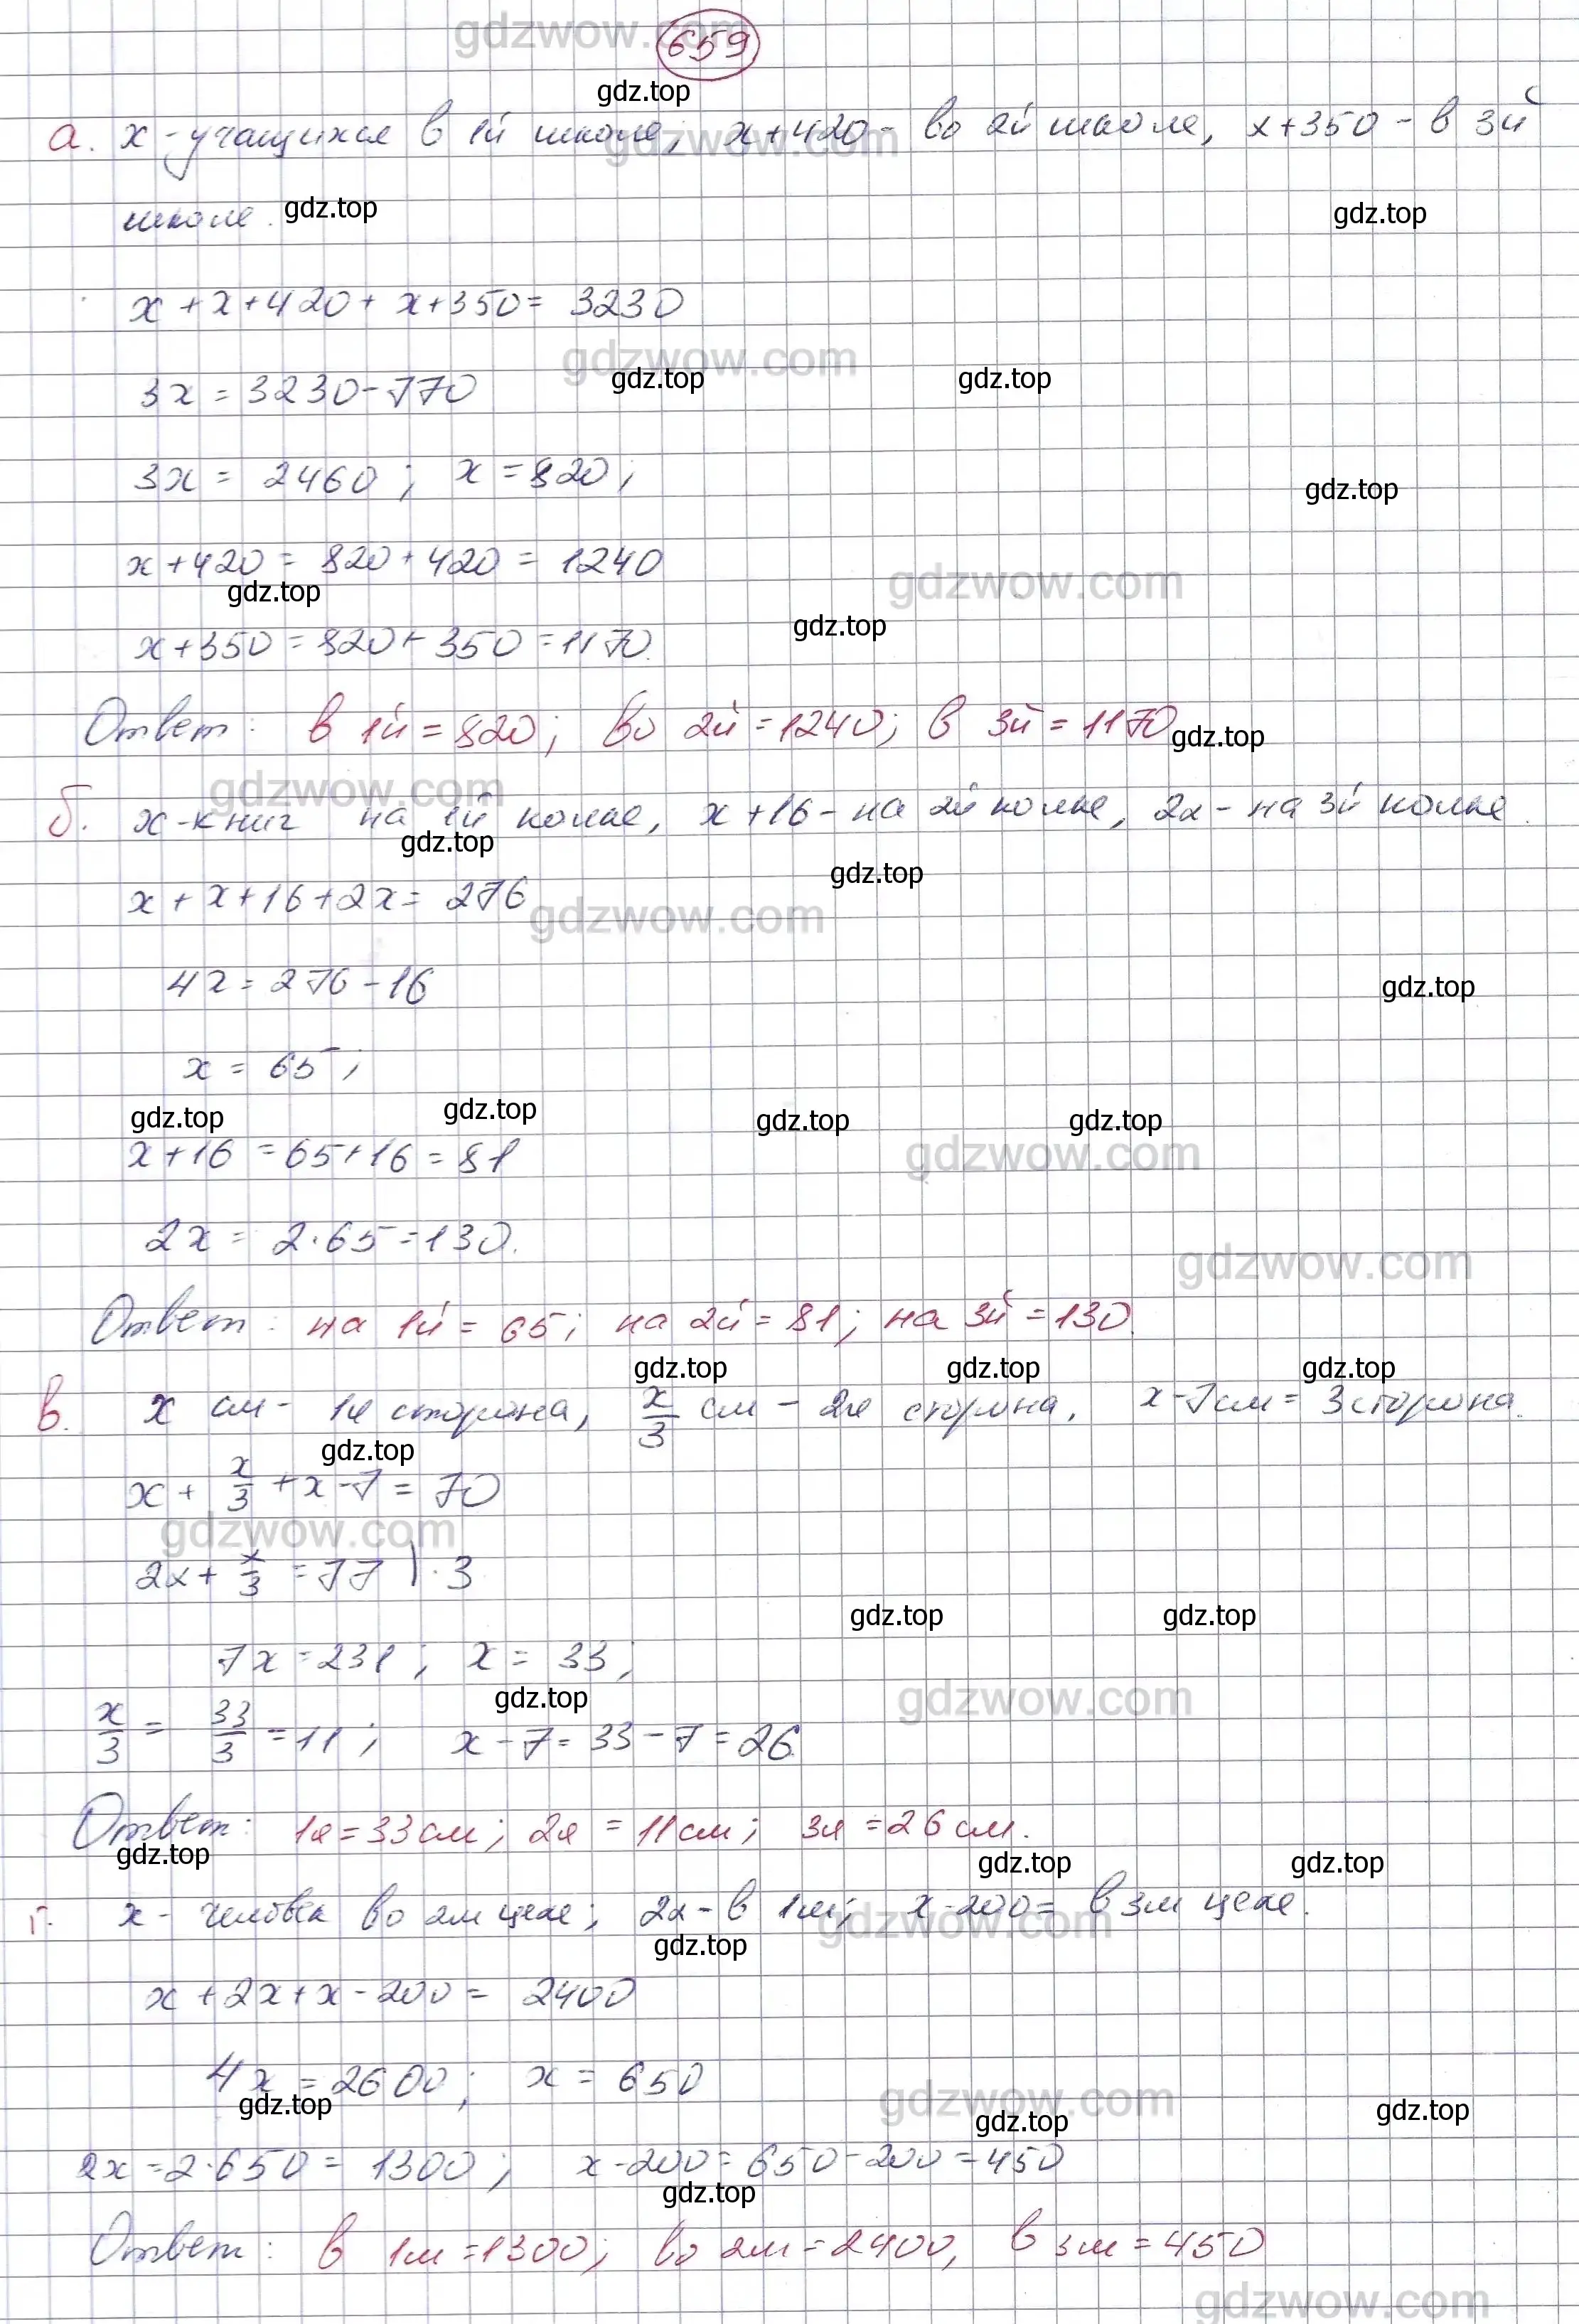 gdzwow.com
659
gdz.top
а. x - учащихся в 1й школе; x+420 - во 2й школе, x+350 - в 3й
gdzwow.com
школе. gdz.top gdz.top
x + x + 420 + x + 350 = 3230
gdzwow.com
3x = 3230 - 770 gdz.top gdz.top
3x = 2460 ; x = 820 ;
gdz.top
x + 420 = 820 + 420 = 1240
gdz.top gdzwow.com
gdz.top
x + 350 = 820 + 350 = 1170.
Ответ: в 1й = 820; во 2й = 1240; в 3й = 1170 gdz.top
gdzwow.com
б. x - книг на 1й полке, x + 16 - на 2й полке, 2x - на 3й полке.
gdz.top gdz.top
x + x + 16 + 2x = 276
gdzwow.com
4x = 276 - 16 gdz.top
x = 65 ;
gdz.top gdz.top gdz.top gdz.top
x + 16 = 65 + 16 = 81 gdzwow.com
2x = 2·65 = 130.
gdzwow.com
Ответ: на 1й = 65; на 2й = 81; на 3й = 130.
gdz.top gdz.top gdz.top
в. x см - 1я сторона, x/3 см - 2я сторона, x - 7 см = 3 сторона.
gdz.top
x + x/3 + x - 7 = 70
gdzwow.com
2x + x/3 = 77 | · 3
gdz.top gdz.top
7x = 231 ; x = 33 ;
gdz.top gdzwow.com
x/3 = 33/3 = 11 ; x - 7 = 33 - 7 = 26.
Ответ: 1я = 33 см; 2я = 11 см; 3я = 26 см.
gdz.top gdz.top gdz.top
г. x - человек во 2м цехе; 2x - в 1м; x - 200 = в 3м цехе.
gdzwow.com
gdz.top
x + 2x + x - 200 = 2400
4x = 2600 ; x = 650
gdz.top gdzwow.com gdz.top gdz.top
2x = 2·650 = 1300 ; x - 200 = 650 - 200 = 450
gdz.top
Ответ: в 1м = 1300; во 2м = 2400, в 3м = 450
gdzwow.com